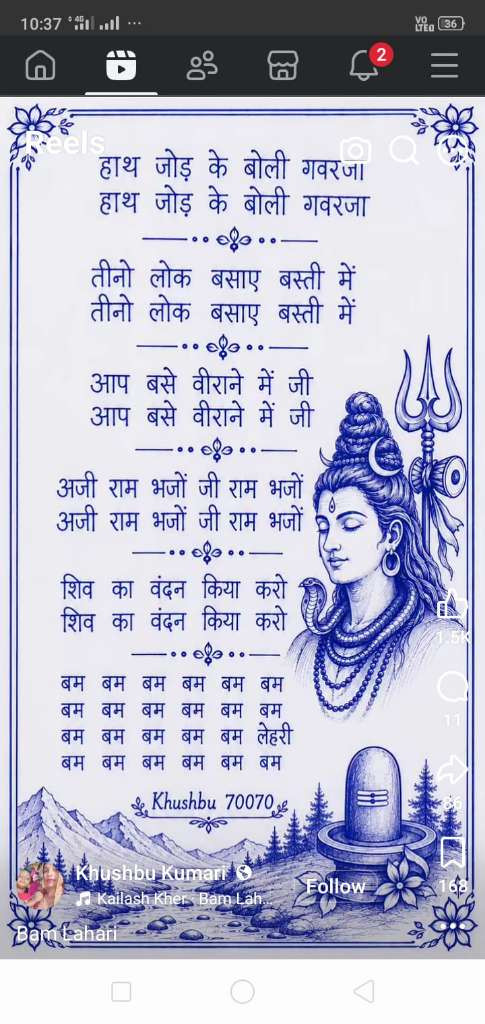 10:37
4G
VO LTED
36
2
Reels
हाथ जोड़ के बोली गवरजा
हाथ जोड़ के बोली गवरजा
तीनो लोक बसाए बस्ती में
तीनो लोक बसाए बस्ती में
आप बसे वीराने में जी
आप बसे वीराने में जी
अजी राम भजों जी राम भजों
अजी राम भजों जी राम भजों
शिव का वंदन किया करो
शिव का वंदन किया करो
बम बम बम बम बम बम
बम बम बम बम बम बम
बम बम बम बम बम लेहरी
बम बम बम बम बम बम
Khushbu 70070
1.5K
11
36
168
Khushbu Kumari
Follow
Kailash Kher · Bam Lah...
Bam Lahari